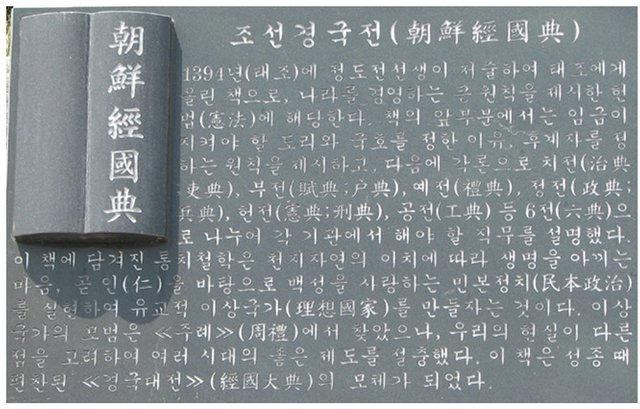 朝鮮經國典
조선경국전(朝鮮經國典)
1394년(태조)에 정도전선생이 저술하여 태조에게
올린 책으로, 나라를 경영하는 큰 원칙을 제시한 헌
법(憲法)에 해당한다. 책의 앞부분에서는 임금이
지켜야 할 도리와 국호를 정한 이유, 후계자를 정
하는 원칙을 제시하고, 다음에 각론으로 치전(治典
吏典), 부전(賦典;户典), 예전(禮典), 정전(政典;
兵典), 헌전(憲典;刑典), 공전(工典) 등 6전(六典)으
로 나누어 각 기관에서 해야 할 직무를 설명했다.
이 책에 담겨진 통치철학은 천지자연의 이치에 따라 생명을 아끼는
마음, 곧 인(仁)을 바탕으로 백성을 사랑하는 민본정치(民本政治)
를 실현하여 유교적 이상국가(理想國家)를 만들자는 것이다. 이상
국가의 모범은 ≪주례≫(周禮)에서 찾았으나, 우리의 현실이 다른
점을 고려하여 여러 시대의 좋은 제도를 절충했다. 이 책은 성종 때
편찬된 ≪경국대전≫(經國大典)의 모체가 되었다.